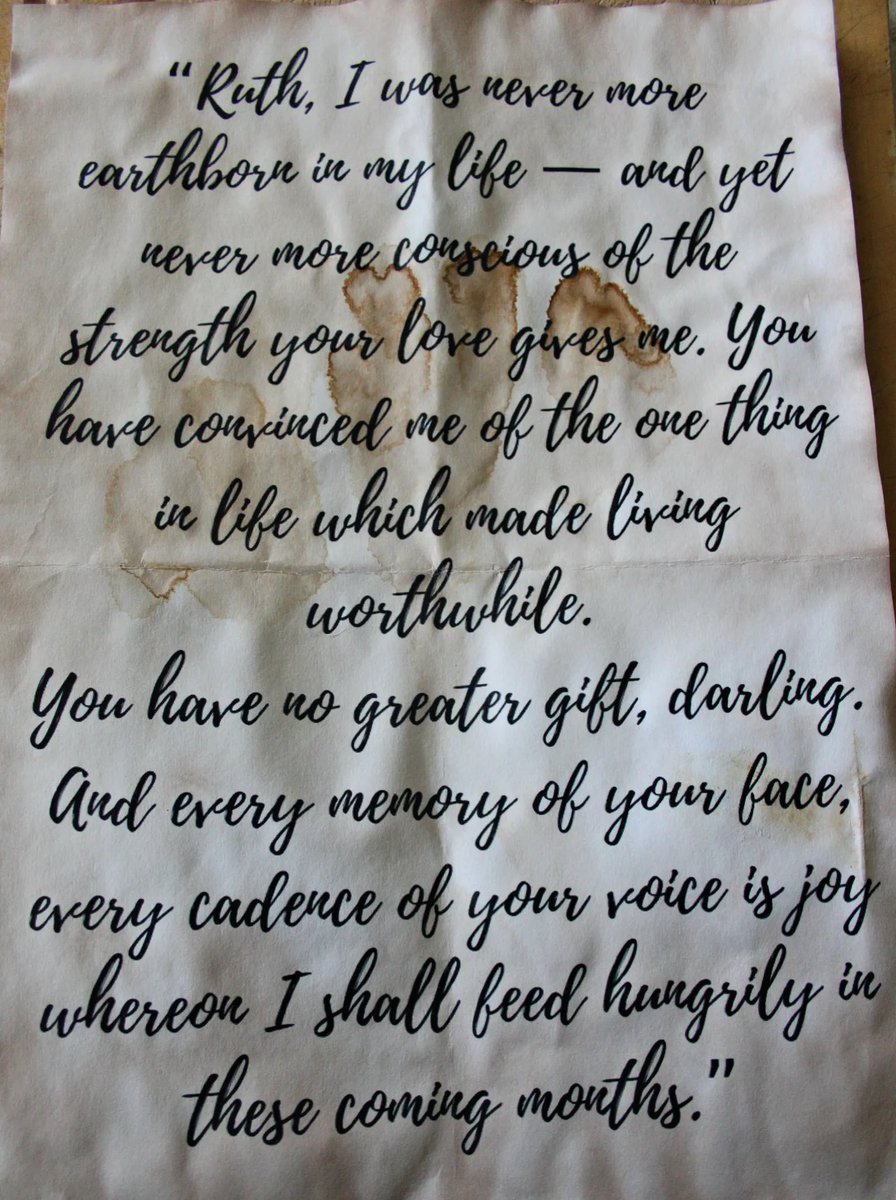 “Ruth, I was never more
earthborn in my life — and yet
never more conscious of the
strength your love gives me. You
have convinced me of the one thing
in life which made living
worthwhile.
You have no greater gift, darling.
And every memory of your face,
every cadence of your voice is joy
whereon I shall feed hungrily in
these coming months.”